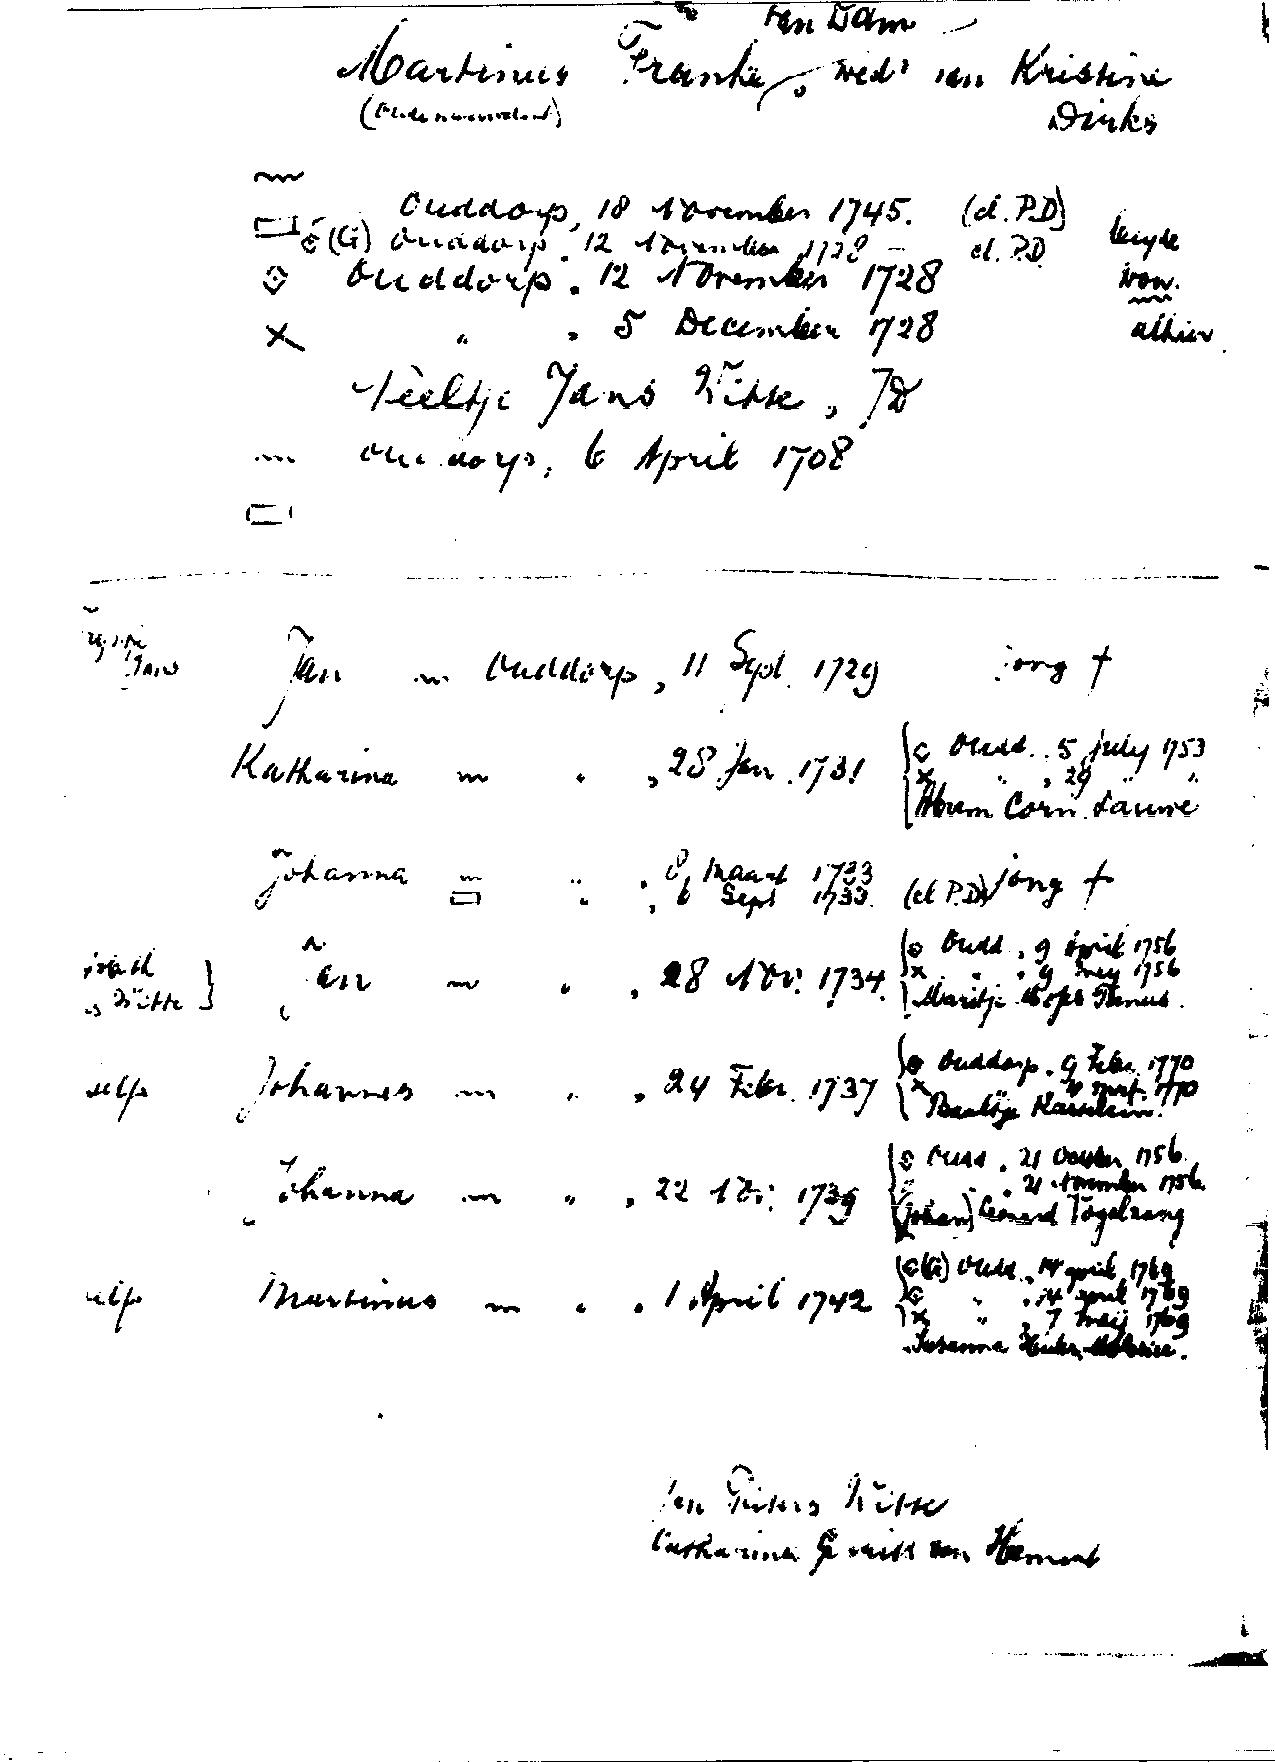 van Dam
Martinus Franke, wedr van Kristine
Dirks
Ouddorp, 18 November 1745. (cl. P.D)
(G) Ouddorp, 12 November 1728 – cl. P.D. beyde
Ouddorp, 12 November 1728 won.
X " , 5 December 1728 alhier
Neeltje Jans Witte, JD
Ouddorp, 6 April 1708
Jans
Jan Ouddorp, 11 Sept. 1729 jong †
Katharina " , 28 Jan. 1731 Oudd. 5 july 1753
X " , 29 " "
Abram Corn.
Johanna " , 8 Maart 1733
" , 6 Sept 1733. (cl P.D) jong †
Witte Jan " , 28 Nov. 1734. Oudd, 9 april 1756
X " , 9 mey 1756
Maritje
Johannes " , 24 Febr. 1737 Ouddorp, 9 Febr. 1770
X 1770
Johanna " , 22 Nov. 1739 Oudd, 21 October 1756.
" , 21 November 1756.
(Johan) Leonard Vogelzang
Martinus " , 1 April 1742 (G) Oudd, 14 april 1769
" , 14 april 1769
X " , 7 mey 1769
Susanna
Jan Pieters Witte
Catharina van